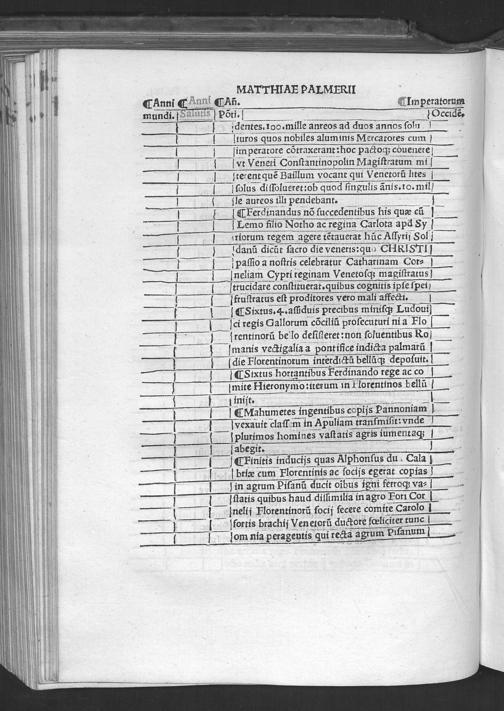 MATTHIAE PALMERII
¶Anni ¶Anni ¶Añ. ¶Imperatorum
mundi. Salutis Põti. Occidẽ.
dentes.100.mille aureos ad duos annos solu
turos quos nobiles aluminis Mercatores cum
imperatore cõtraxerant:hoc pactoq; covenere
vt Veneri Constantinopoln Magistratum mi
terent quẽ Baillum vocant qui Venetorũ lites
solus dissolueret:ob quod singulis ãnis.10.mil
le aureos illi pendebant.
¶Ferdinandus nõ succedentibus his quæ cũ
Lemo filio Notho ac regina Carlota apd Sy
riorum regem agere tẽtauerat hũc Assyrij Sol
danũ dicũt sacro die veneris:quo CHRISTI
passio a nostris celebratur Catharinam Cor
neliam Cypri reginam Venetosq; magistratus
trucidare constituerat.quibus cognitis ipse spei
frustratus est proditores vero mali affecti.
¶Sixtus.4.assiduis precibus minisq; Ludoui
ci regis Gallorum cõciliũ prosecuturi ni a Flo
rentinorũ bello desisteret:non soluentibus Ro
manis vectigalia a pontifice indicta palmarũ
die Florentinorum interdictũ bellũq; deposuit.
¶Sixtus hortantibus Ferdinando rege ac co
mite Hieronymo:iterum in Florentinos bellũ
inijt.
¶Mahumetes ingentibus copijs Pannoniam
vexauit classem in Apuliam transmisit:vnde
plurimos homines vastatis agris iumentaq;
abegit.
¶Finitis inducijs quas Alphonsus du. Cala
briæ cum Florentinis ac socijs egerat copias
in agrum Pisanũ ducit oĩbus igni ferroq; va
statis quibus haud dissimilia in agro Fori Cor
nelij Florentinorũ socij fecere comite Carolo
fortis brachij Venetorũ ductore fœliciter tunc
omnia peragentis qui recta agrum Pisanum